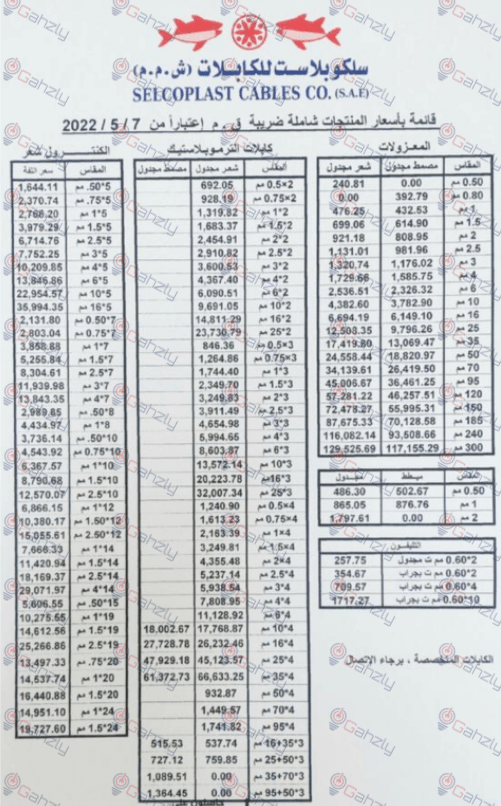 سلكوبلاست للكابلات (ش.م.م)
SELCOPLAST CABLES CO. (S.A.E)
قائمة بأسعار المنتجات شاملة ضريبة ق . م إعتباراً من 7 / 5 / 2022
المعزولات
المقاس مصمط مجدول شعر مجدول
0.50 مم 0.00 240.81
0.80 مم 392.79 0.00
1 مم 432.53 476.25
1.5 مم 614.90 699.06
2 مم 808.95 921.18
2.5 مم 981.96 1,131.01
3 مم 1,176.02 1,320.74
4 مم 1,585.75 1,729.66
6 مم 2,326.32 2,536.51
10 مم 3,782.90 4,382.60
16 مم 6,149.10 6,694.19
25 مم 9,796.26 12,508.35
35 مم 13,069.47 17,419.80
50 مم 18,820.97 24,558.44
70 مم 26,419.50 34,139.61
95 مم 36,461.25 45,006.67
120 مم 46,257.51 57,281.22
150 مم 55,995.31 72,478.27
185 مم 70,128.58 87,675.33
240 مم 93,508.66 116,082.14
300 مم 117,155.29 129,525.69
المقاس مبطط مجدول
0.50 مم 502.67 486.30
1 مم 876.76 865.05
2 مم 0.00 1,797.61
التليفون
2*0.60 مم ت مجدول 257.75
2*0.60 مم ت بجراب 354.67
4*0.60 مم ت بجراب 709.57
10*0.60 مم ت بجراب 1717.27
الكابلات المتخصصة ، برجاء الاتصال
كابلات الترموبلاستيك
المقاس شعر مجدول مصمط مجدول
2×0.5 مم 692.05
2×0.75 مم 928.19
2*1 مم 1,319.82
2*1.5 مم 1,683.37
2*2 مم 2,454.91
2*2.5 مم 2,910.82
2*3 مم 3,600.53
2*4 مم 4,367.40
2*6 مم 6,090.51
2*10 مم 9,691.05
2*16 مم 14,811.29
2*25 مم 23,730.79
3×0.5 مم 846.36
3×0.75 مم 1,264.86
3*1 مم 1,744.40
3*1.5 مم 2,349.70
3*2 مم 3,249.83
3*2.5 مم 3,911.49
3*3 مم 4,654.98
3*4 مم 5,994.65
3*6 مم 8,603.87
3*10 مم 13,572.14
3*16 مم 20,223.78
3*25 مم 32,007.34
4×0.5 مم 1,240.90
4×0.75 مم 1,613.23
4×1 مم 2,163.39
4×1.5 مم 3,249.81
4×2 مم 4,355.48
4*2.5 مم 5,237.14
4*3 مم 5,938.54
4*4 مم 7,808.95
4*6 مم 11,128.92
4*10 مم 17,768.87 18,002.67
4*16 مم 26,232.46 27,728.78
4*25 مم 45,123.57 47,929.18
4*35 مم 66,633.25 61,372.73
4*50 مم 932.87
4*70 مم 1,449.57
4*95 مم 1,741.82
3*35+16 مم 537.74 515.53
3*50+25 مم 759.85 727.12
3*70+35 مم 0.00 1,089.51
3*95+50 مم 0.00 1,364.45
الكنتـــرول شعر
المقاس سعر اللفة
5*50. مم 1,644.11
5*75. مم 2,370.74
5*1 مم 2,768.20
5*1.5 مم 3,979.29
5*2.5 مم 6,714.76
5*3 مم 7,752.25
5*4 مم 10,209.85
5*6 مم 13,846.86
5*10 مم 22,954.57
5*16 مم 35,994.35
7*0.50 مم 2,131.80
7*0.75 مم 2,803.04
7*1 مم 3,858.88
7*1.5 مم 5,255.84
7*2.5 مم 8,304.61
7*3 مم 11,939.98
7*4 مم 13,843.35
8*50. مم 2,989.65
8*1 مم 4,434.97
10*50. مم 3,736.14
10*0.75 مم 4,543.92
10*1 مم 6,367.57
10*1.5 مم 8,790.68
10*2.5 مم 12,570.07
12*1 مم 6,866.15
12*1.50 مم 10,380.17
12*2.50 مم 15,055.61
14*1 مم 7,666.33
14*1.5 مم 11,420.94
14*2.5 مم 18,169.37
14*4 مم 29,071.97
15*50. مم 5,606.55
19*1 مم 10,275.65
19*1.5 مم 14,612.56
19*2.5 مم 25,266.86
20*75. مم 13,497.33
20*1 مم 14,537.74
20*1.5 مم 16,440.88
24*1 مم 14,951.10
24*1.5 مم 19,727.60
حاصلون على
Gahzly